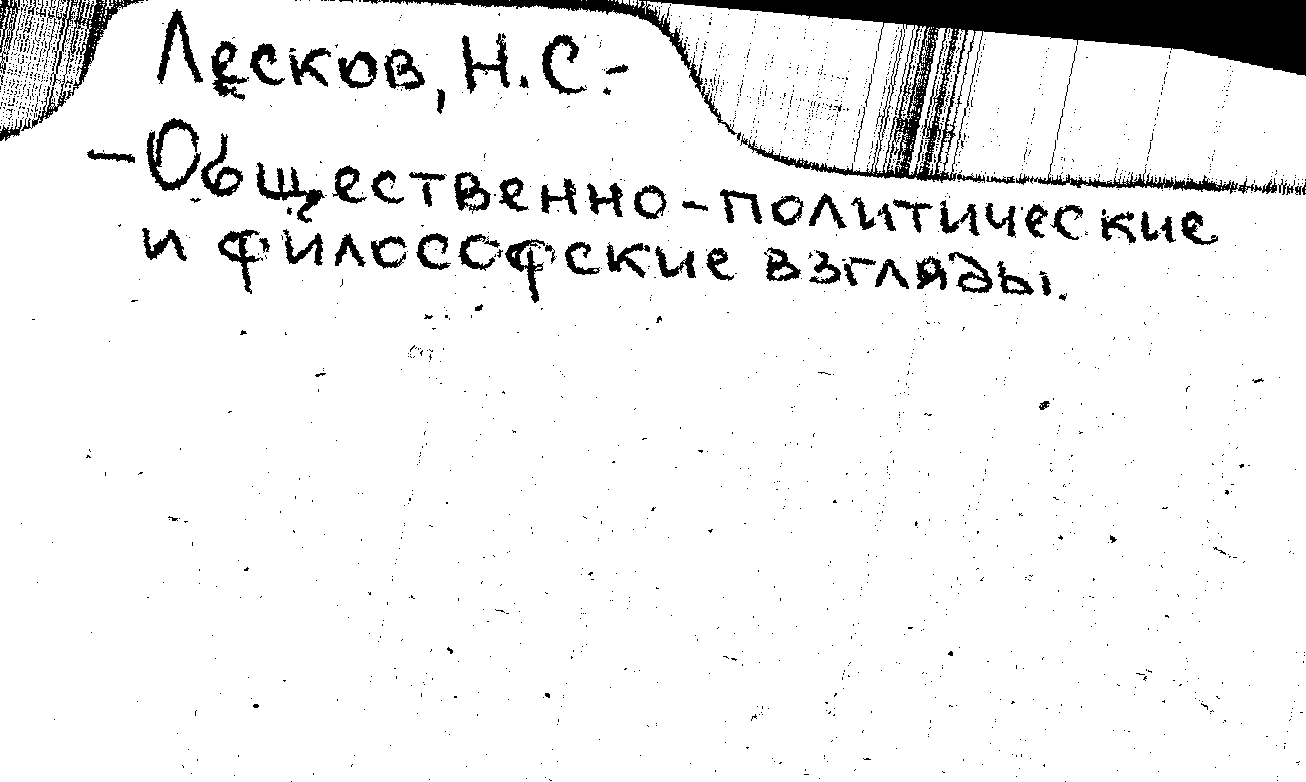 Лесков, Н.С.-
-Общественно-политические
и философские взгляды.